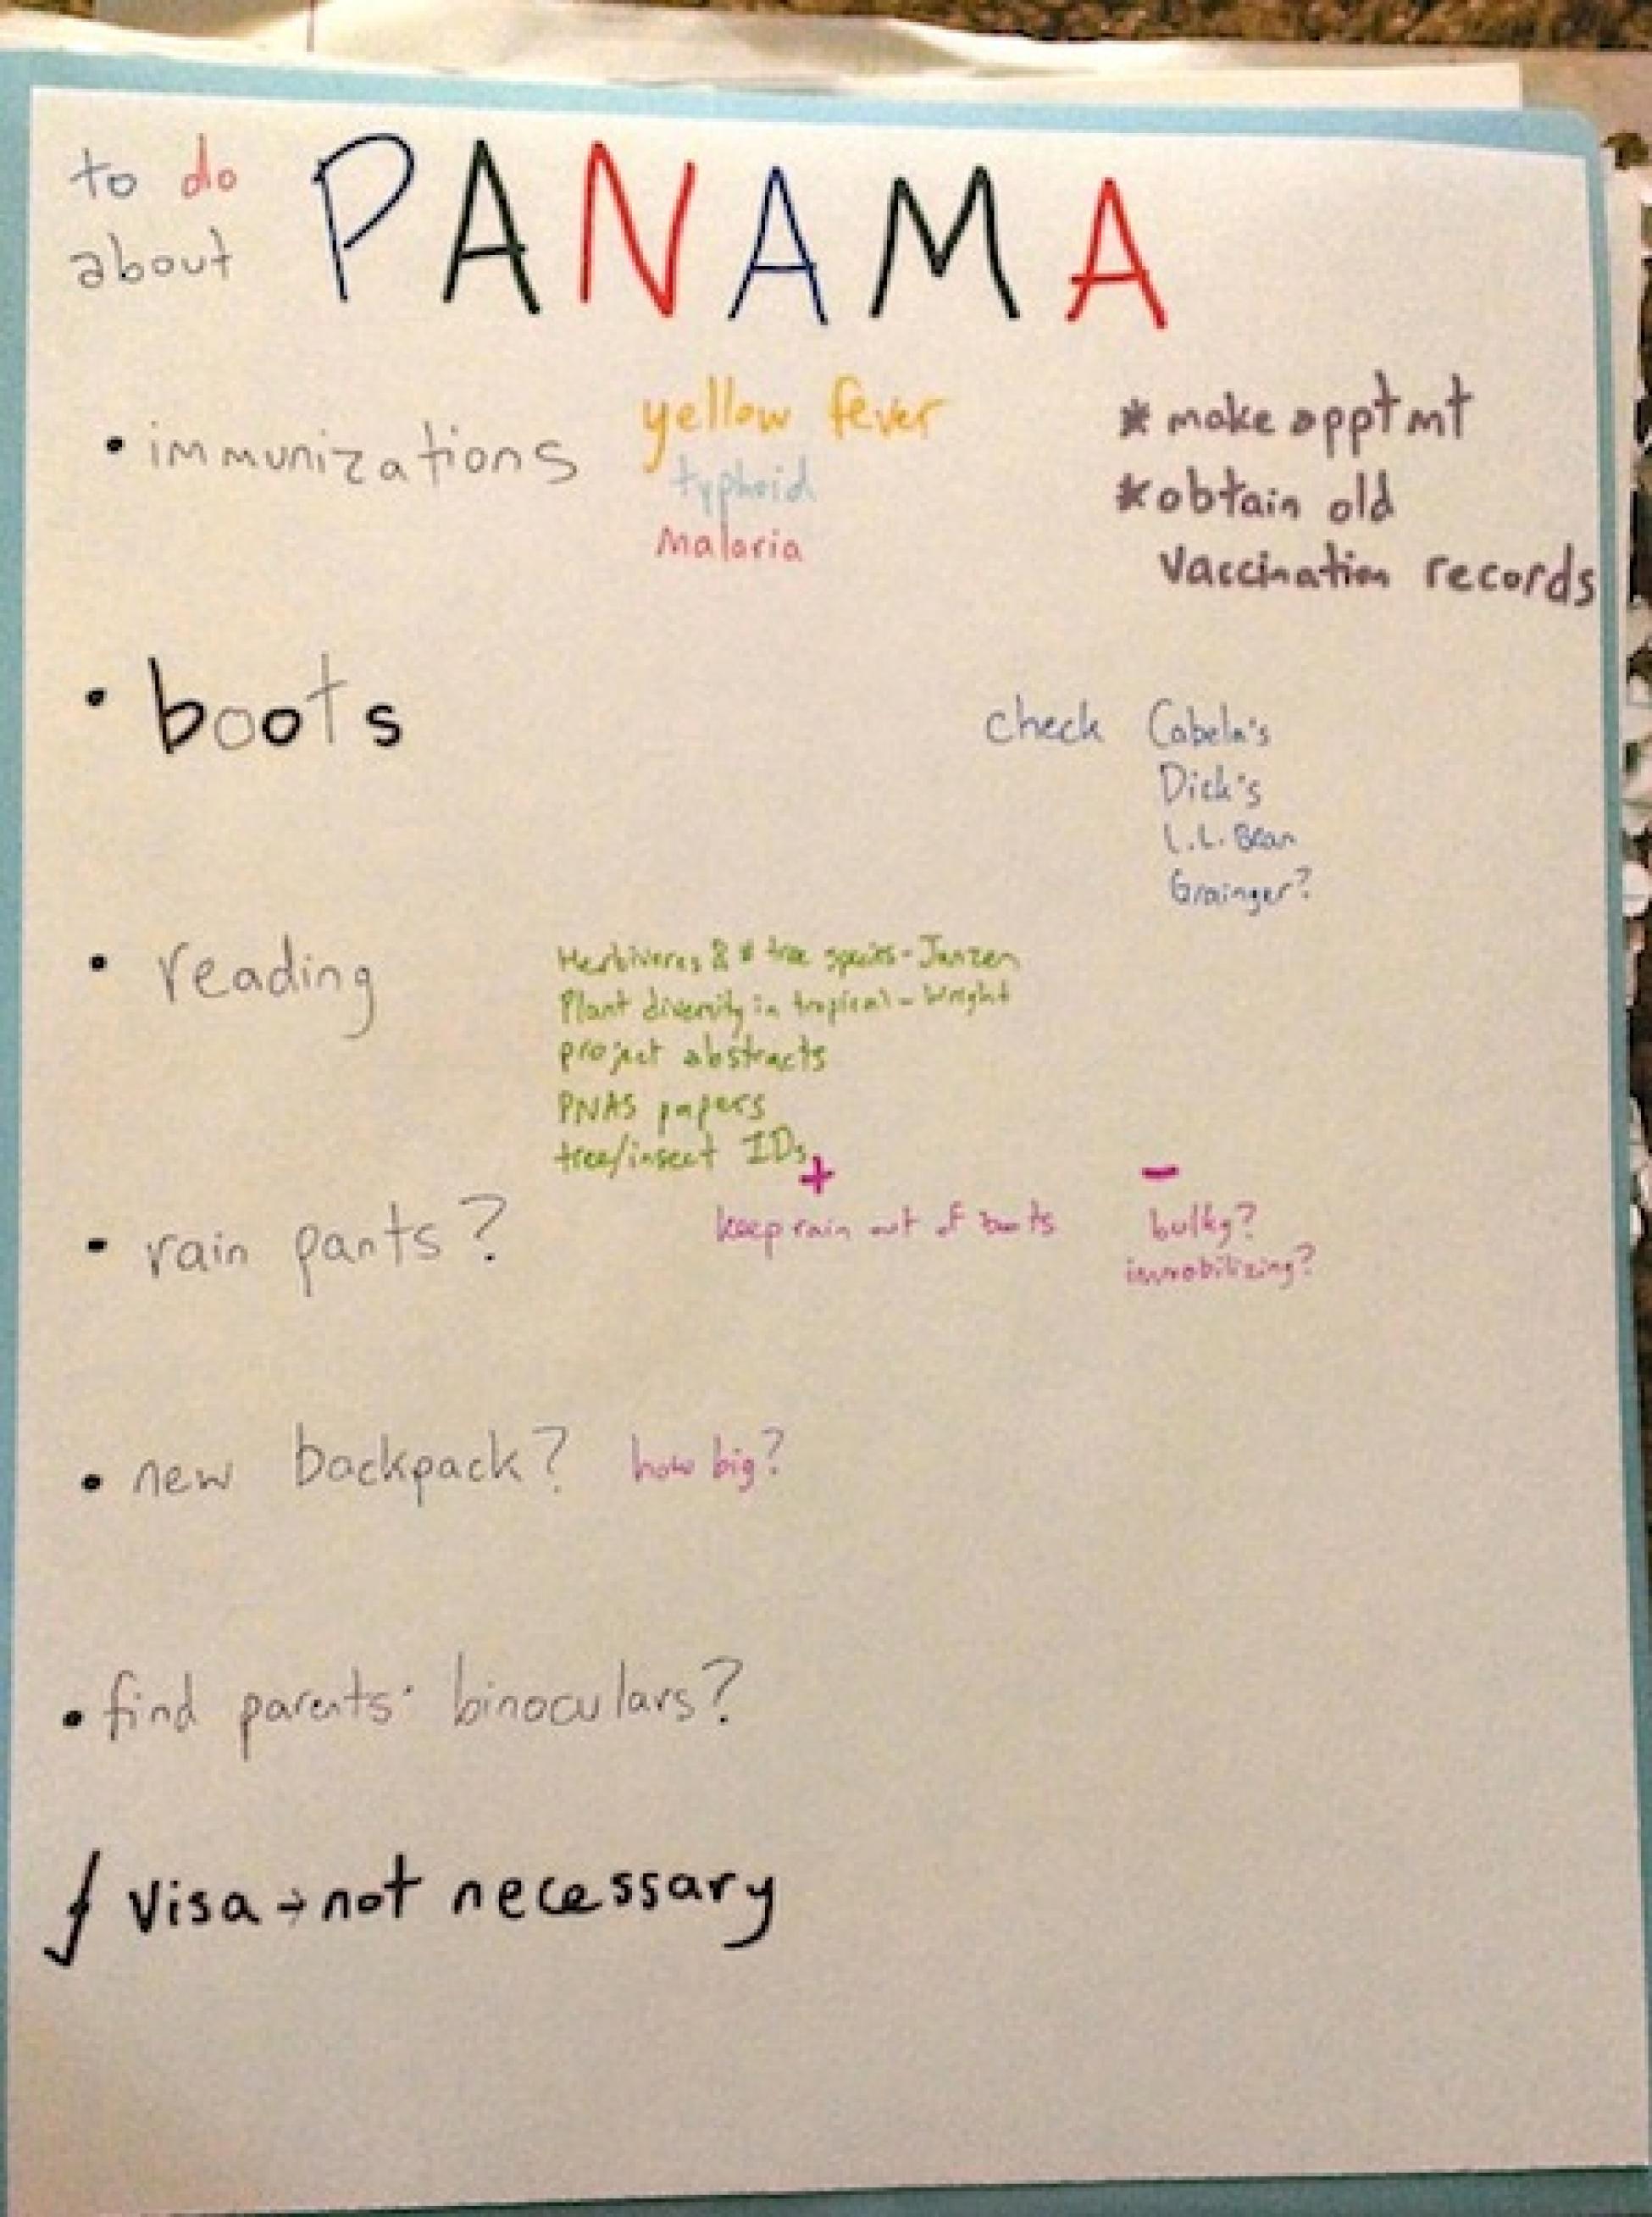 to do
about
PANAMA
• immunizations
yellow fever
typhoid
malaria
* make apptmt
* obtain old
vaccination records
• boots
check Cabela's
Dick's
L.L. Bean
Grainger?
• reading
Herbivores & # tree species - Janzen
Plant diversity in tropical - Wright
project abstracts
PNAS papers
tree/insect IDs
• rain pants?
+
keep rain out of boots
-
bulky?
immobilizing?
• new backpack? how big?
• find parents' binoculars?
✓ visa → not necessary